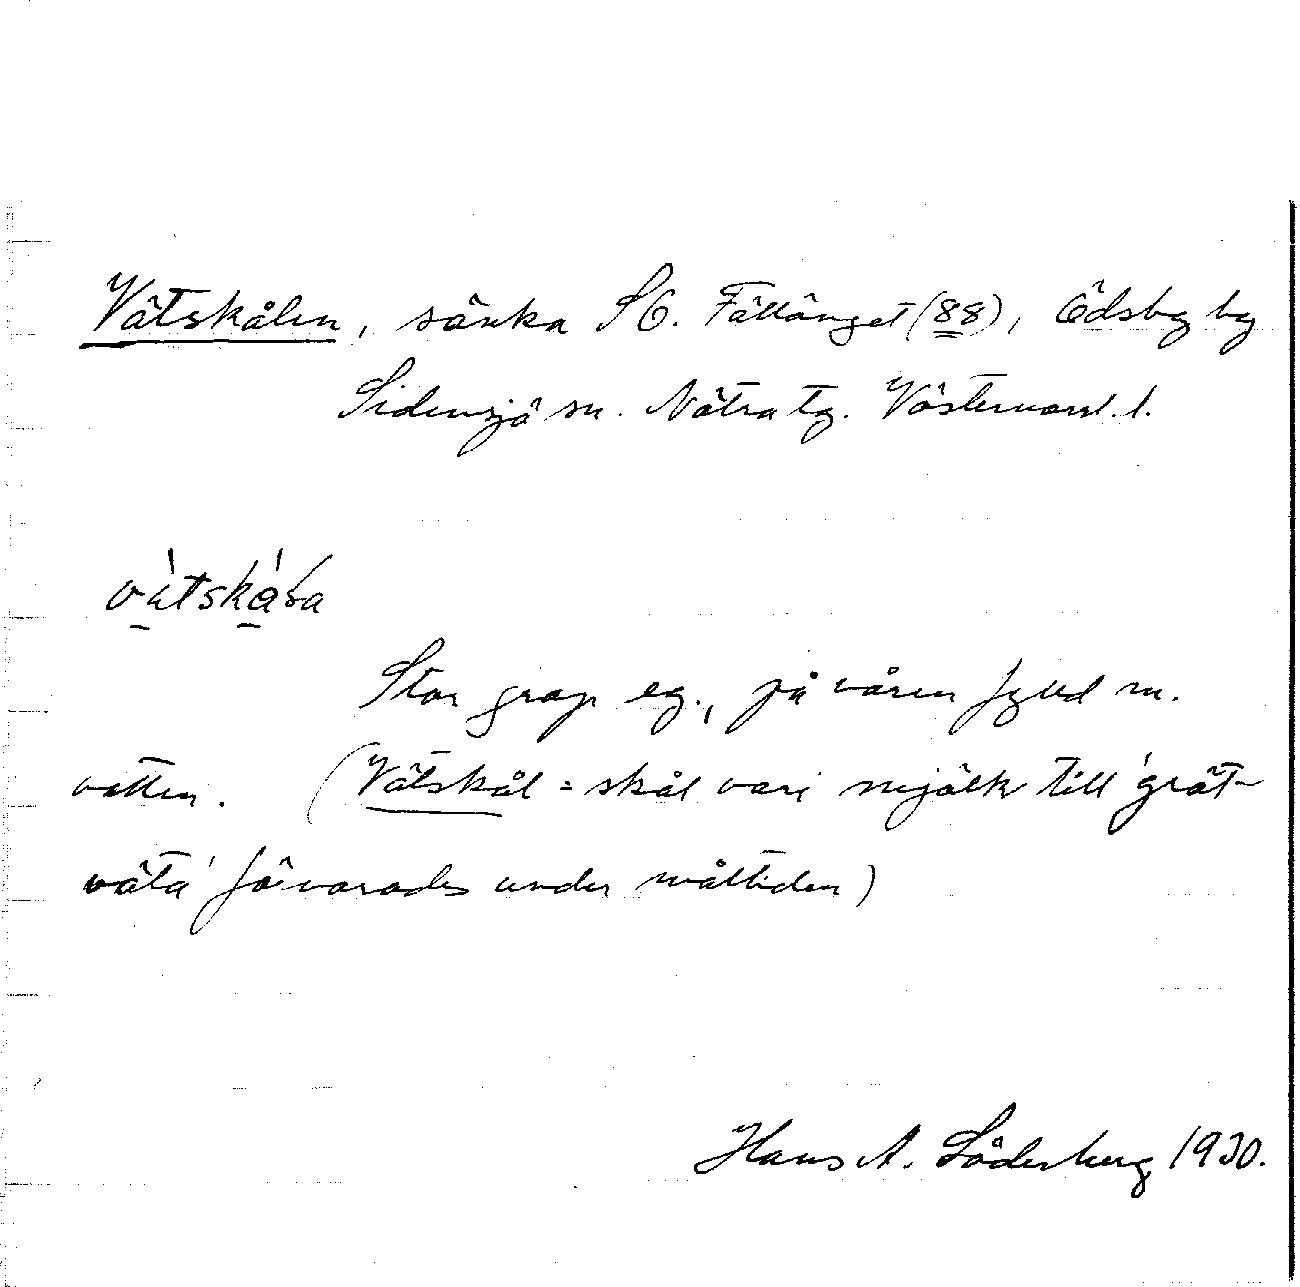 Vätskålen, sänka SO. Fällänget (88), Ödsby by
Sidensjö sn. Nätra tg. Västernorrl. l.
Stor grop eg., på våren fylld m.
vatten. (Vätskål = skål vari mjölk till 'gröt-
väta' förvarades under måltiden)
Hans A. Söderberg 1930.